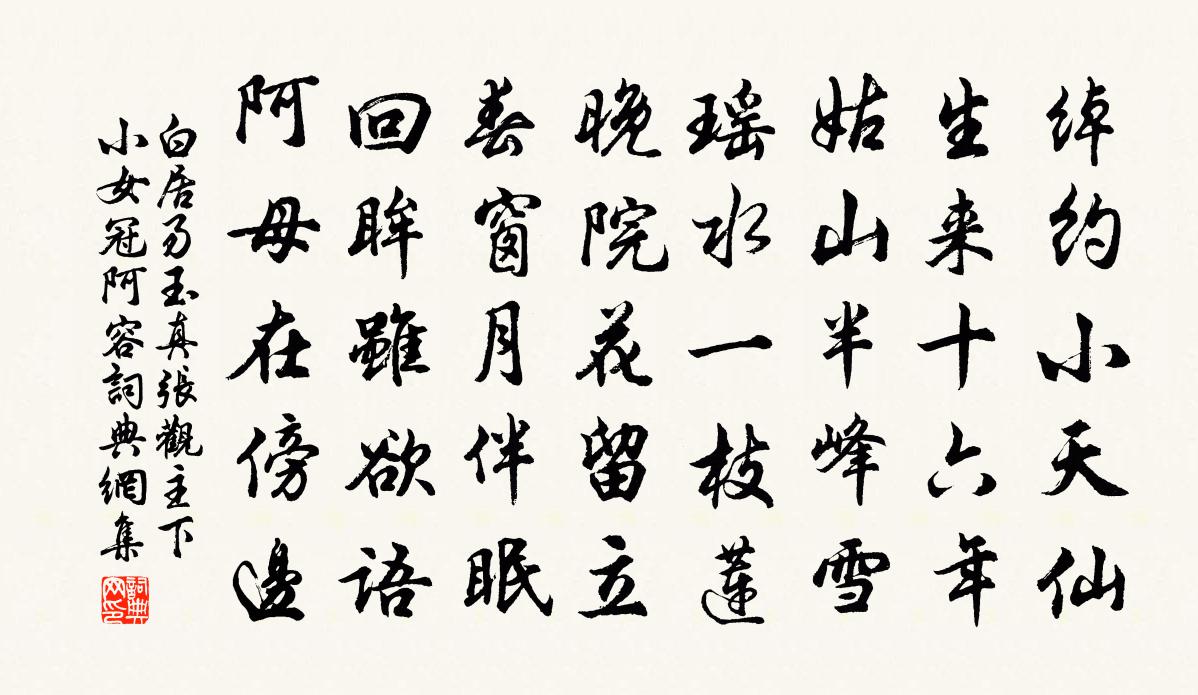 綽約小天仙
生来十六年
姑山半峰雪
瑶水一枝蓮
晚院花留立
春窗月伴眠
回眸雖欲語
阿母在傍邊
白居易玉真張觀主下
小女冠阿容詞典網集
詞典
网印